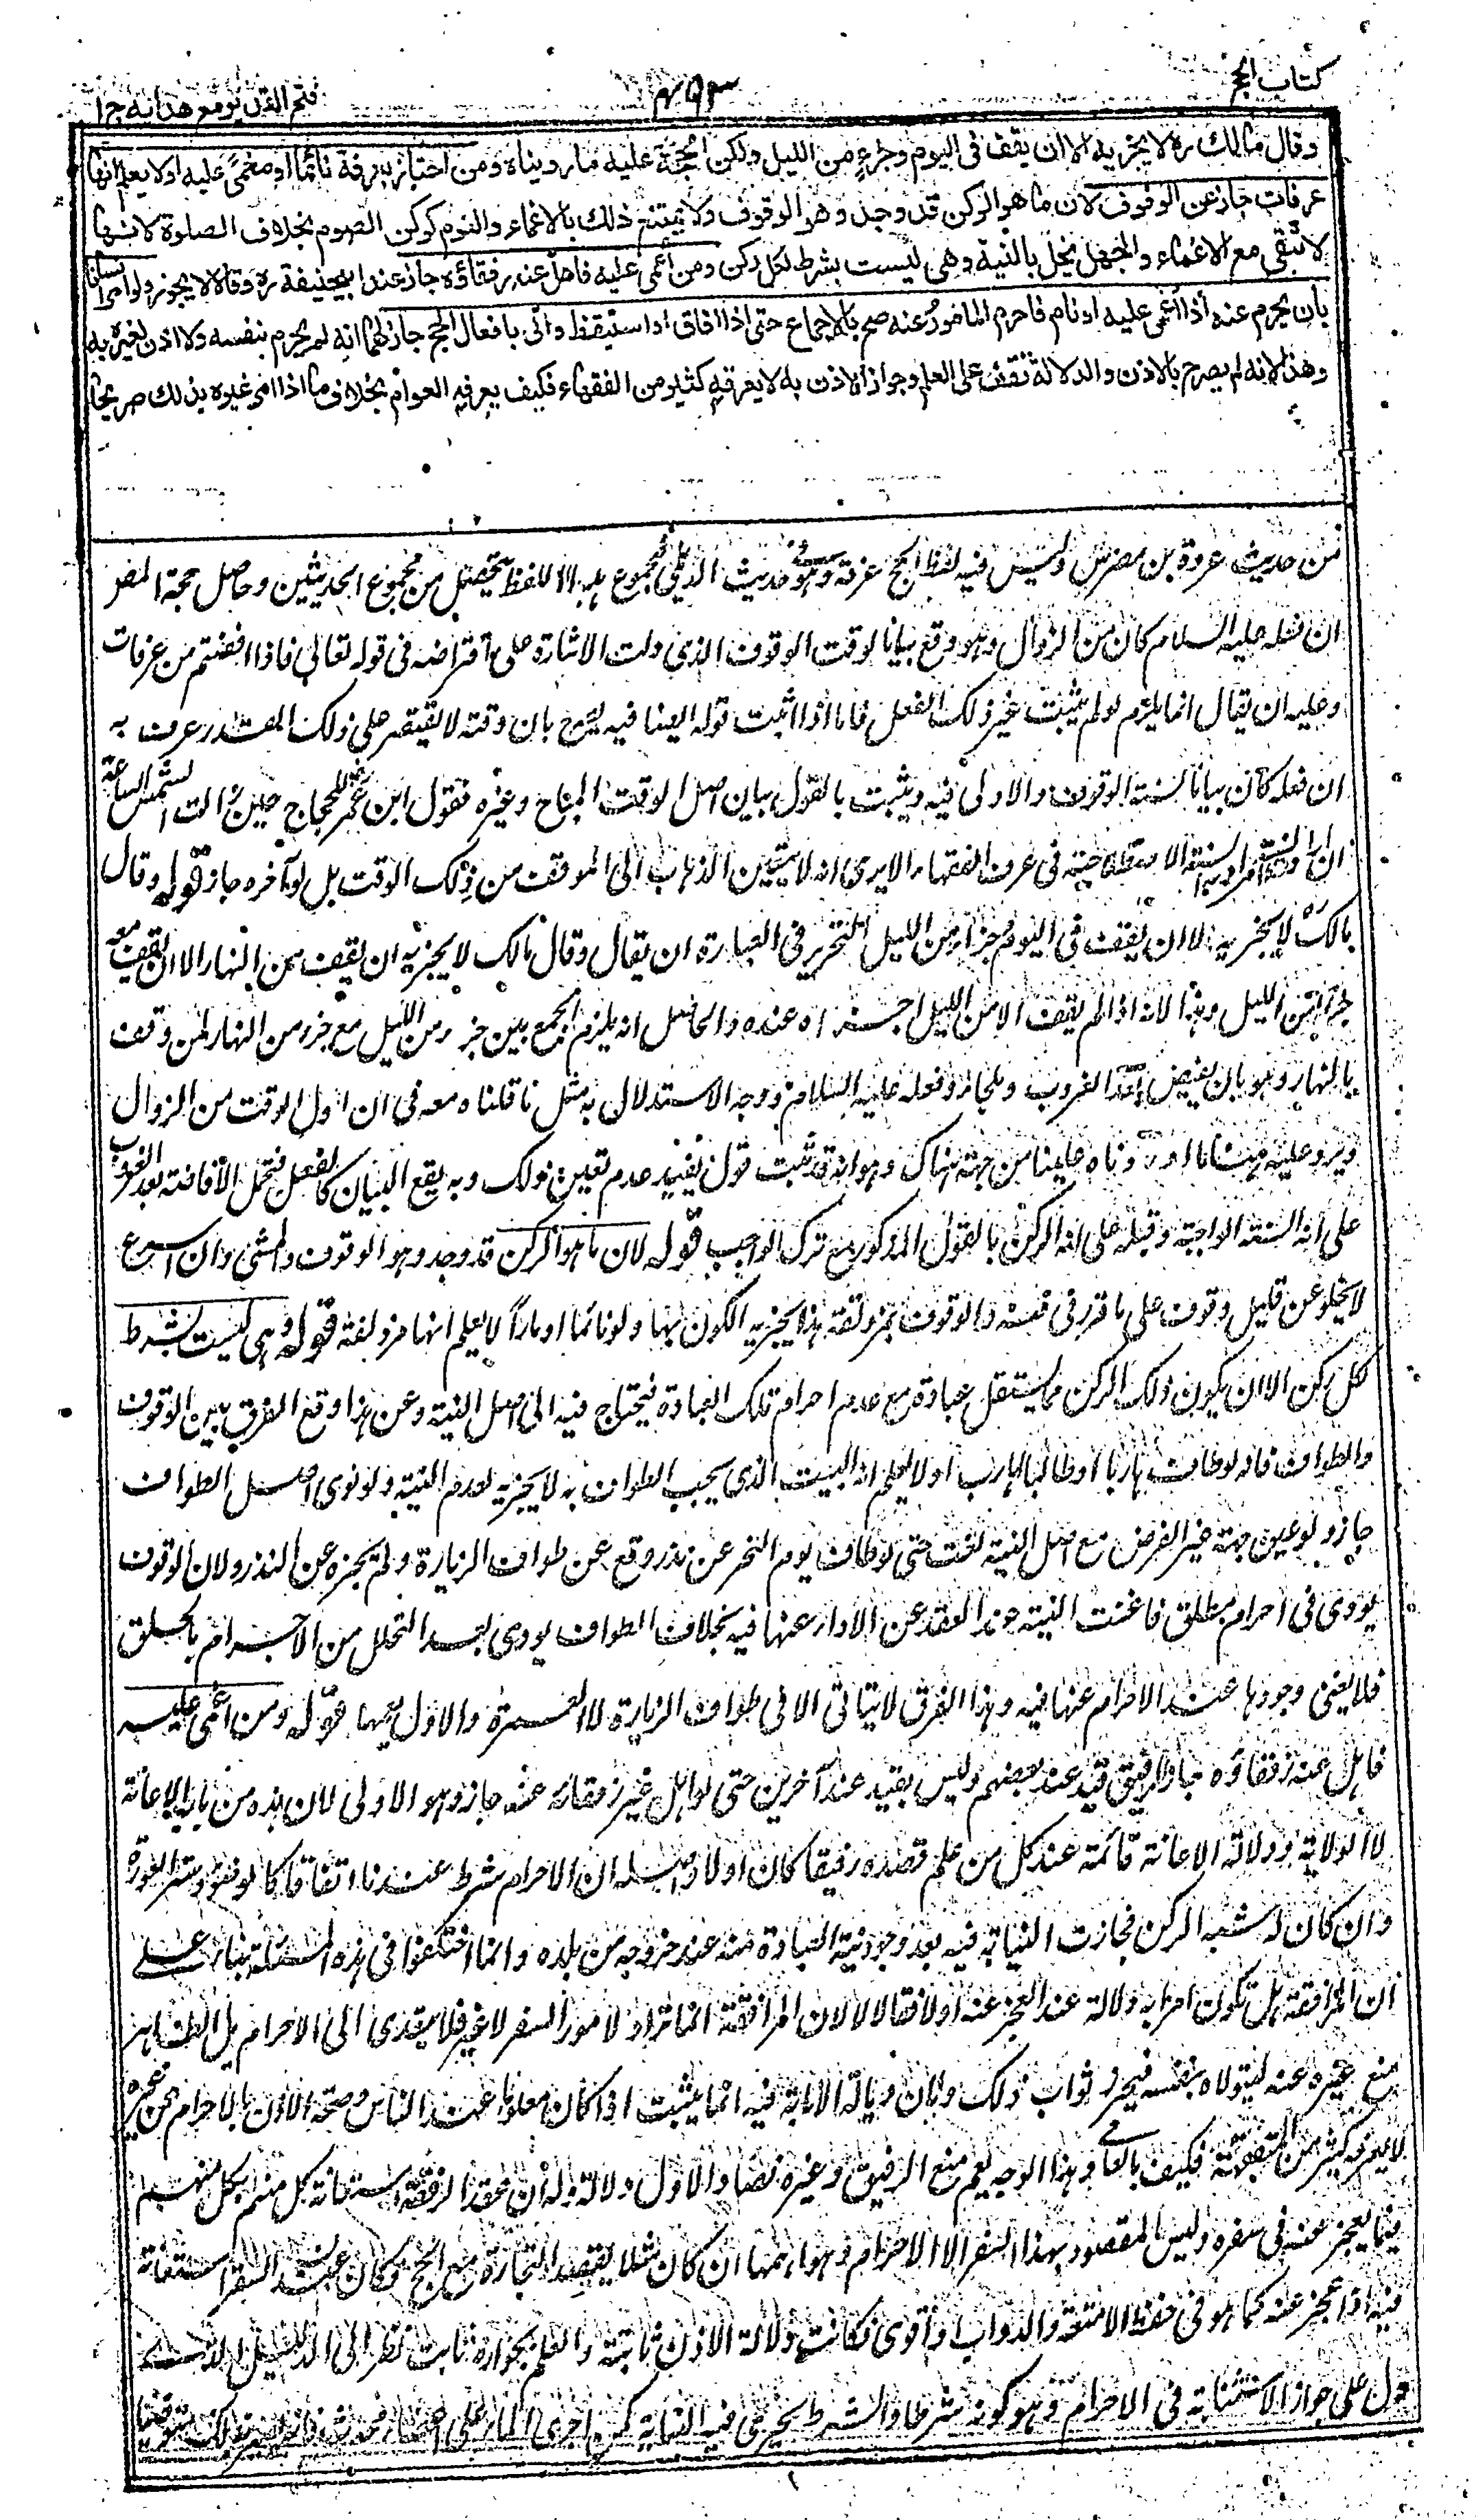 كتاب الحج
٤٩٣
فتح القدير مع هدايه ج ا
وقال مالك ره لا يجزيه الا ان يقف فى اليوم وجزء من الليل ولكن الحجة عليه ما رويناه ومن اجتاز بعرفة نائما او مغمى عليه او لا يعلم انها
عرفات جاز عن الوقوف لان ما هو الركن قد وجد وهو الوقوف ولا يمتنع ذلك بالاغماء والنوم كركن الصوم بخلاف الصلوة لانها
لا تبقى مع الاغماء والجهل يخل بالنية وهى ليست بشرط لكل ركن ومن اغمى عليه فاهل عنه رفقاؤه جاز عند ابيحنيفة ره وقالا لا يجوز ولو امر انسانا
بان يحرم عنه اذا اغمى عليه او نام فاحرم المامور عنه صح بالاجماع حتى اذا افاق او استيقظ واتى بافعال الحج جاز لهما انه لم يحرم بنفسه ولا اذن لغيره به
وهذا لانه لم يصرح بالاذن والدلالة تقف على العلم وجواز الاذن به لا يعرفه كثير من الفقهاء فكيف يعرفه العوام بخلاف ما اذا امر غيره بذلك صريحا
من حديث عروة بن مضرس وليس فيه لفظ الحج عرفة وهو فى حديث الديلى فمجموع هذا اللفظ يتحصل من مجموع الحديثين وحاصل حجة المص
ان فعله عليه السلام كان من الزوال وهو وقع بيانا لوقت الوقوف الذى دلت الاشارة على افتراضه فى قوله تعالى فاذا افضتم من عرفات
وعليه ان يقال انما يلزم لو لم يثبت غير ذلك الفعل فاما اذا اثبت قوله ايضا فيه يصرح بان وقته لا يقتصر على ذلك المقدر عرف به
ان فعله كان بيانا لسنة الوقوف والاولى فيه ويثبت بالقول بيان اصل الوقت المباح وغيره فقول ابن عمر للحجاج حين زالت الشمس الساعة
ان اردت السنة المراد به السنة الاصطلاحية فى عرف الفقهاء الا يرى انه لا يتعين الذهاب الى الموقف من ذلك الوقت بل لو آخره جاز قوله وقال
مالك ره لا يجزيه الا ان يقف فى اليوم وجزء من الليل التحرير فى العبارة ان يقال وقال مالك لا يجزيه ان يقف من النهار الا ان يقف معه
جزء من الليل وهذا لانه اذا لم يقف الا من الليل اجزاه عنده والحاصل انه يلزم الجمع بين جزء من الليل مع جزء من النهار لمن وقف
بالنهار وهو بان يفيض بعد الغروب وملجاؤه فعله عليه السلام ووجه الاستدلال به مثل ما قلناه معه فى ان اول الوقت من الزوال
ويرد عليه هنا ما اوردناه علينا من جهته هناك وهو انه قد ثبت قول يفيد عدم تعين ذلك وبه يقع البيان كالفعل فتحمل الافاضة بعد الغروب
على انه السنة الواجبة وقبله على انه الركن بالقول المذكور مع ترك الواجب قوله لان ما هو الركن قد وجد وهو الوقوف والمشى وان اسرع
لا يخلو عن قليل وقوف على ما قرر فى فنه والوقوف بمزدلفة هذا يجزيه الكون بها ولو نائما او مارا لا يعلم انها مزدلفة قوله وهى ليست بشرط
لكل ركن الا ان يكون ذلك الركن مما يستقل عبادة مع عدم احرام تلك العبادة فيحتاج فيه الى اصل النية وعن هذا وقع الفرق بين الوقوف
والطواف فانه لو طاف هاربا او طالبا لهارب او لا يعلم انه البيت الذى يجب الطواف به لا يجزيه لعدم النية ولو نوى اصل الطواف
جاز ولو عين جهة غير الفرض مع اصل النية لغت حتى لو طاف يوم النحر عن نذر وقع عن طواف الزيارة ولم يجزه عن النذر ولان الوقوف
يؤدى فى احرام مطلق فاغنت النية عند العقد عن الاداء عنها فيه بخلاف الطواف يؤدى بعد التحلل من الاحرام بالحلق
فلا يغنى وجودها عند الاحرام عنها فيه وهذا الفرق لا يتاتى الا فى طواف الزيارة لا العمرة والاول يعمها قوله ومن اغمى عليه
فاهل عنه رفقاؤه جاز الرفيق قيد عند بعضهم وليس بقيد عند آخرين حتى لو اهل غير رفقائه عنه جاز وهو الاولى لان هذه من باب الاعانة
لا الولاية ودلالة الاعانة قائمة عند كل من علم قصده رفيقا كان او لا واصله ان الاحرام شرط عندنا اتفاقا كالوضوء وستر العورة
وان كان له شبه الركن فجازت النيابة فيه بعد وجود نية العبادة منه عند خروجه من بلده وانما اختلفوا فى هذه المسئلة بناء على
ان المرافقة هل تكون امرا به دلالة عند العجز عنه او لا فقالا لا لان المرافقة انما تراد لامور السفر لا غير فلا يتعدى الى الاحرام بل الظاهر
منع غيره عنه ليتولاه بنفسه فيحرز ثواب ذلك وبان دلالة الانابة فيه انما يثبت اذا كان معلوما عند الناس وصحة الاذن بالاحرام عن غيره
لا يعرفه كثير من المتفقهة فكيف بالعامى وهذا الوجه يعم منع الرفيق وغيره نصا والاول دلالة وله ان عقد الرفقة استعانة كل منهم بكل منهم
فيما يعجز عنه فى سفره وليس المقصود بهذا السفر الا الاحرام وهو اهمها ان كان مثلا يقصد التجارة مع الحج فكان عقد السفر استعانة
فيه اذا عجز عنه كما هو فى حفظ الامتعة والدواب او اقوى فكانت دلالة الاذن ثابتة والعلم بجوازه ثابت نظرا الى الدليل الذى
دل على جواز الاستنابة فى الاحرام وهو كونه شرطا والشرط يجرى فيه النيابة كمن اجرى الماء على اعضاء محدث